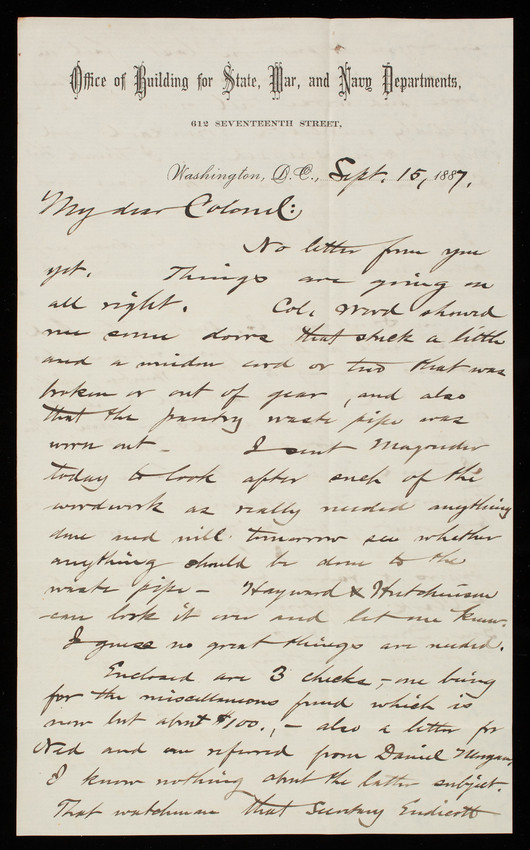 Office of Building for State, War, and Navy Departments,
612 SEVENTEENTH STREET,
Washington, D.C., Sept. 15, 1887.
My dear Colonel:
No letter from you
yet. Things are going on
all right. Col. Word showed
me some doors that stick a little
and a window cord or two that was
broken or out of gear, and also
that the pantry waste pipe was
worn out - I sent Magruder
today to look after such of the
woodwork as really needed anything
done and will tomorrow see whether
anything should be done to the
waste pipe - Hayward & Hutchinson
can look it over and let me know.
I guess no great things are needed.
Enclosed are 3 checks, - one being
for the miscellaneous fund which is
now but about $100., - also a letter for
Ned and one referred from Daniel Morgan,
I know nothing about the latter subject.
That watchman that Secretary Endicott